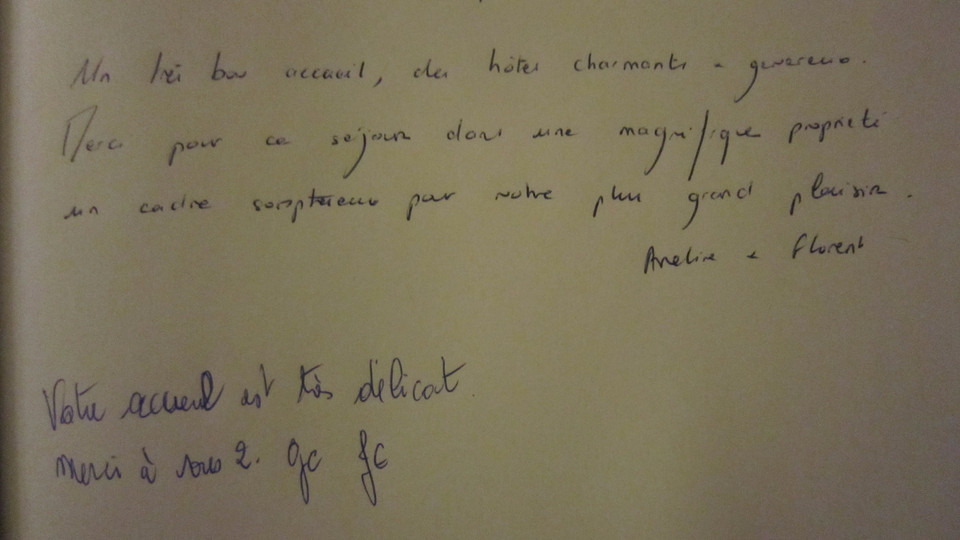 Un très bon accueil, des hôtes charmants & genereux.
Merci pour ce séjour dans une magnifique propriété
un cadre somptueux pour notre plus grand plaisir.
& Florent
Votre accueil est très délicat.
Merci à vous 2. gc fc